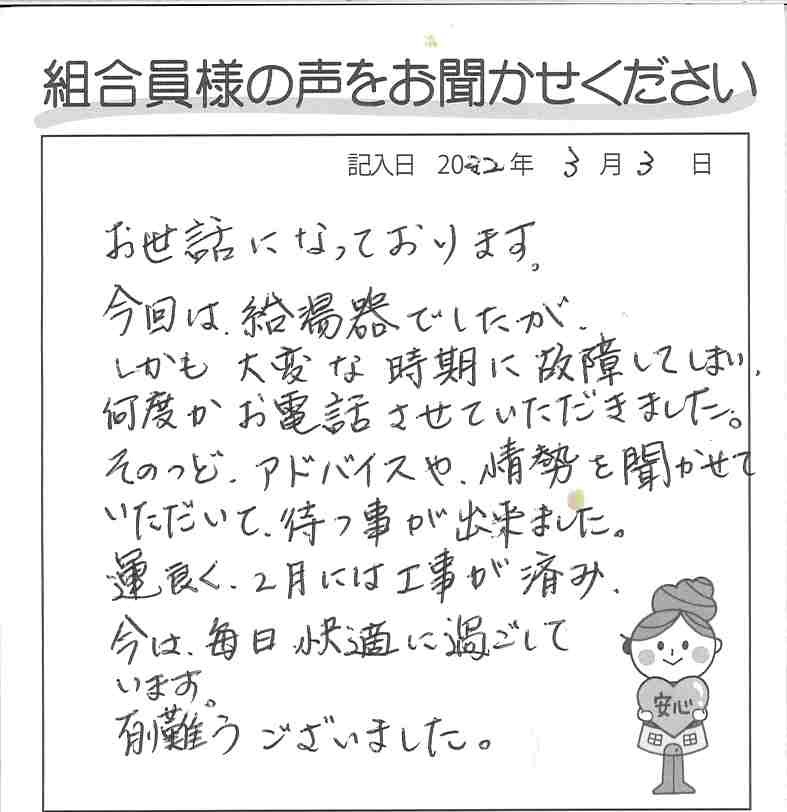 組合員様の声をお聞かせください
記入日 2022年 3月 3日
お世話になっております。
今回は、給湯器でしたが、
しかも大変な時期に故障してしまい、
何度かお電話させていただきました。
そのつど、アドバイスや、情勢を聞かせて
いただいて、待つ事が出来ました。
運良く、2月には工事が済み、
今は、毎日快適に過ごして
います。
有難うございました。
安心